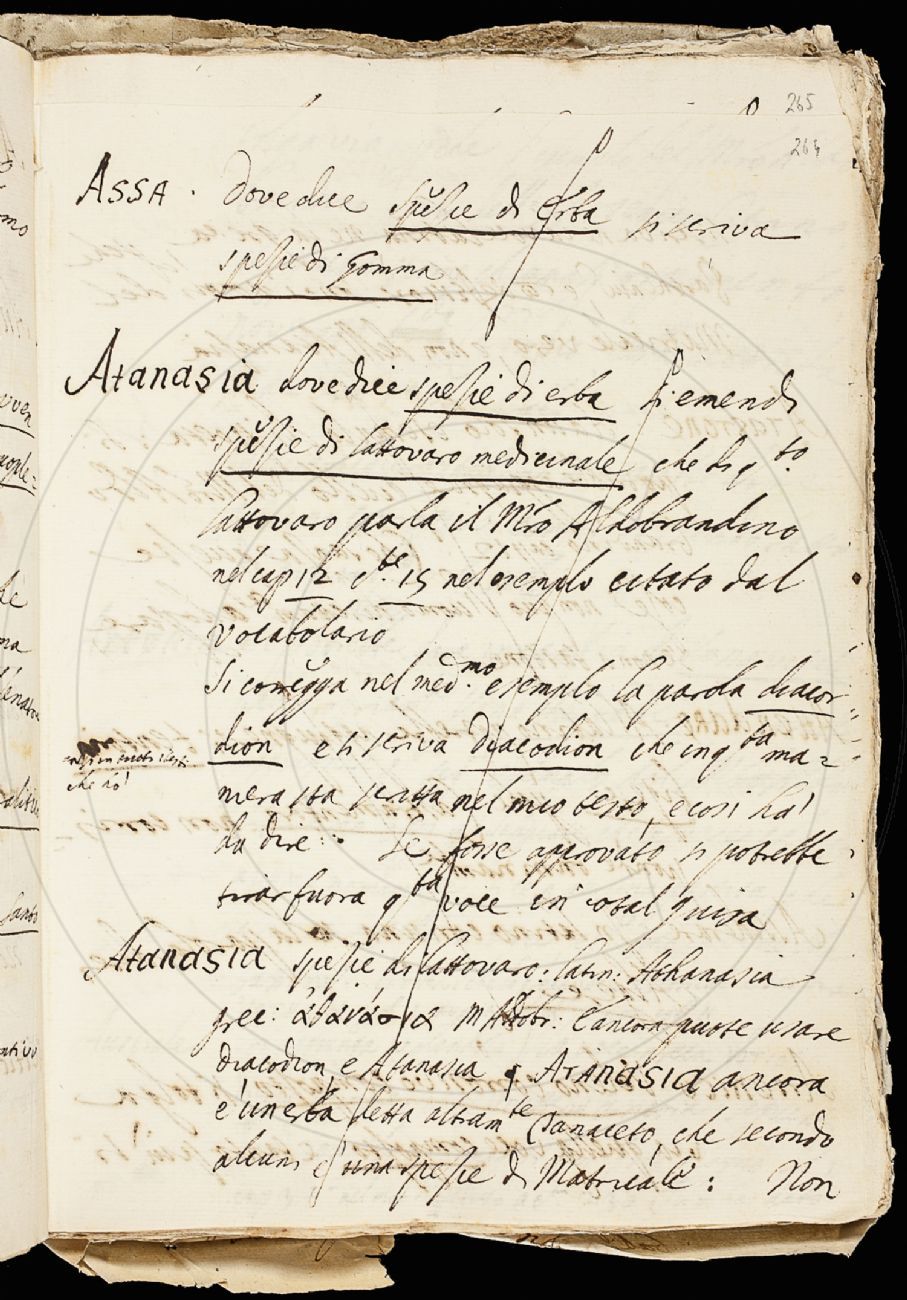 265
264
ASSA. Dove dice spezie di erba si scriva
spezie di Gomma
Atanasia dove dice spezie di erba si emendi
spezie di lattovaro medicinale che di qto
lattovaro parla il Mro Aldobrandino
nel cap 12 c.te 15 nel esemplo citato dal
vocabolario
Si corregga nel medmo esemplo la parola diacor-
dion e si scriva Diacodion che in qta ma=
niera sta scritta nel mio testo, e così ha
da dire: Se fosse approvato si potrebbe
che hò
tirar fuora qta voce in cotal guisa
Atanasia spezie di lattovaro: latin: Athanasia
grec: ἀθανάσια M Aldobr: E ancora puote usare
Diacodion, e Atanasia ATANASIA ancora
è un erba detta altramte Tanaceto, che secondo
alcuni è una spezie di Matricale: Non